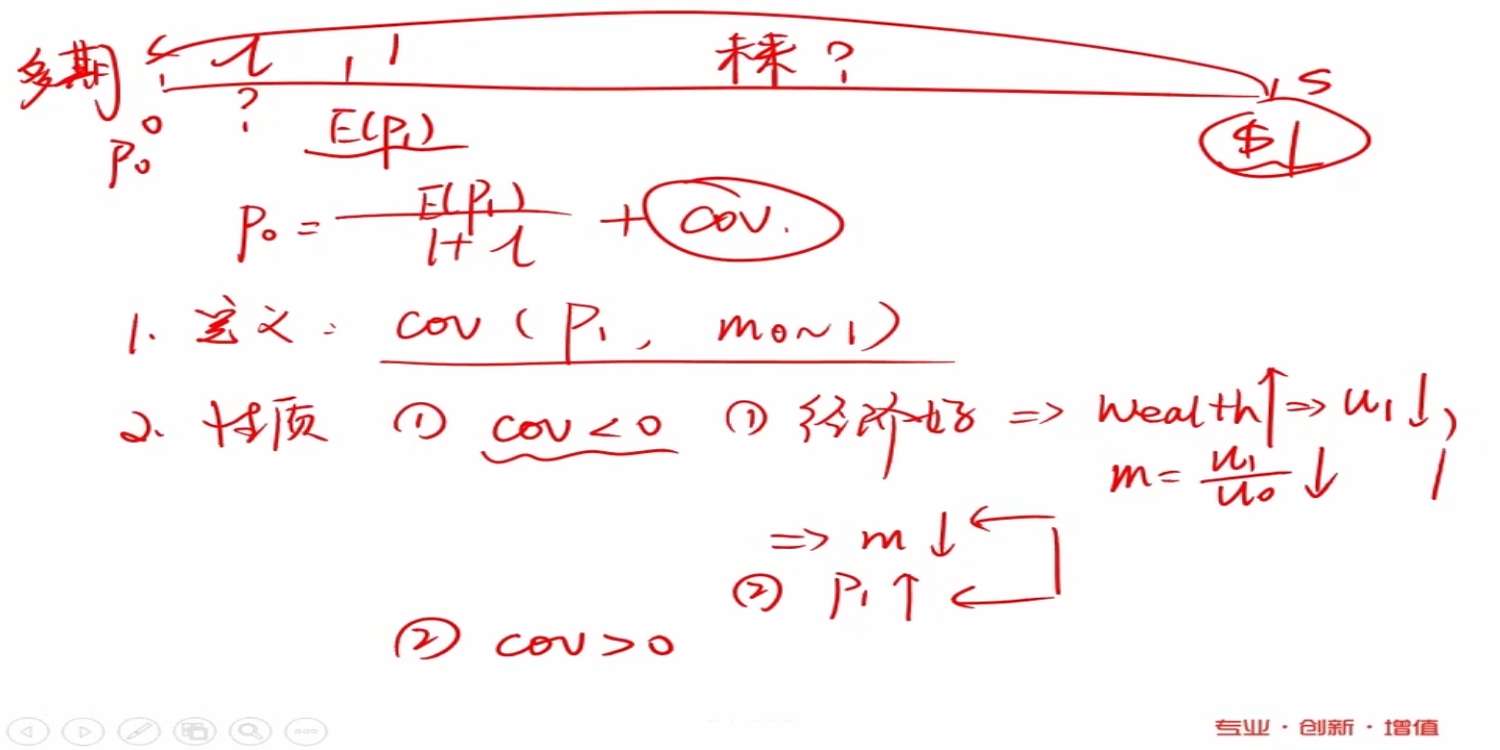 多期 s l , 1 未来? s
0 ? E(P₁) $1
P₀
P₀ = E(P₁)/(1+l) + cov.
1. 定义: cov(P₁, m₀~₁)
2. 性质 ① cov<0 ① 经济好 => wealth↑ => u₁↓,
m = u₁/u₀ ↓
=> m↓
② P₁↑
② cov>0
专业·创新·增值